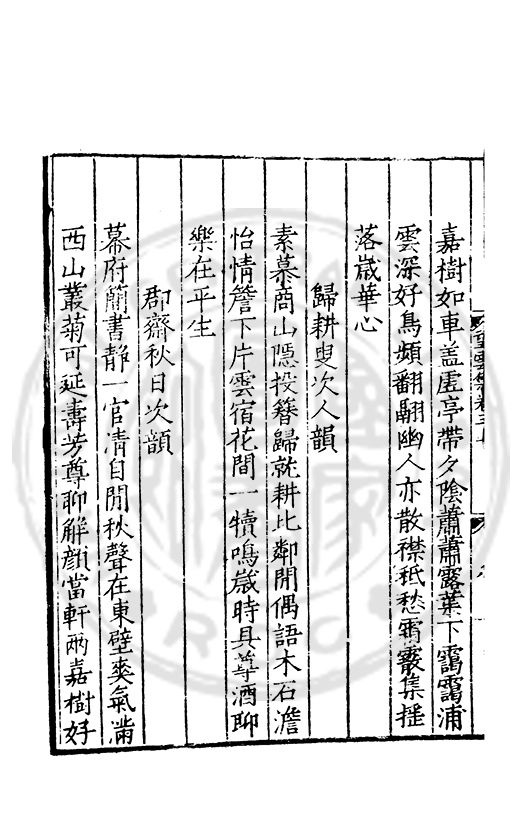 嘉樹如車盖虗亭帶夕陰蕭蕭露葉下靄靄浦
雲深好鳥頻翻翮幽人亦散襟秪愁霜霰集揺
落歳華心
歸耕叟次人韻
素慕商山隠投簮歸就耕比鄰開偶語木石澹
怡情簷下片雲宿花間一犢鳴歳時具等酒聊
樂在平生
郡齋秋日次韻
幕府簡書静一官清自閒秋聲在東壁爽氣滿
西山叢菊可延壽芳尊聊解顔當軒兩嘉樹好
望雲集卷三